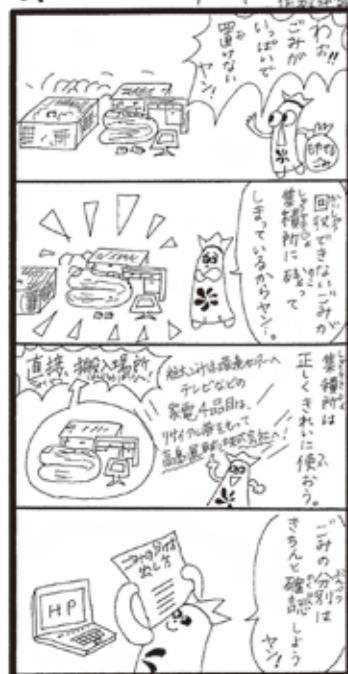 わぉ!!
ごみが
いっぱいで
置けない
ヤン!
もやせる
ごみ
回収できないごみが
集積所に残って
しまっているからヤン…。
集積所は
正しくきれいに使おう。
粗大ごみは環境センターへ
テレビなどの
家電4品目は、
リサイクル券をもって
直接 搬入場所
ごみの分別は
きちんと確認しよう
ヤン!
ごみの分け方
出し方
HP